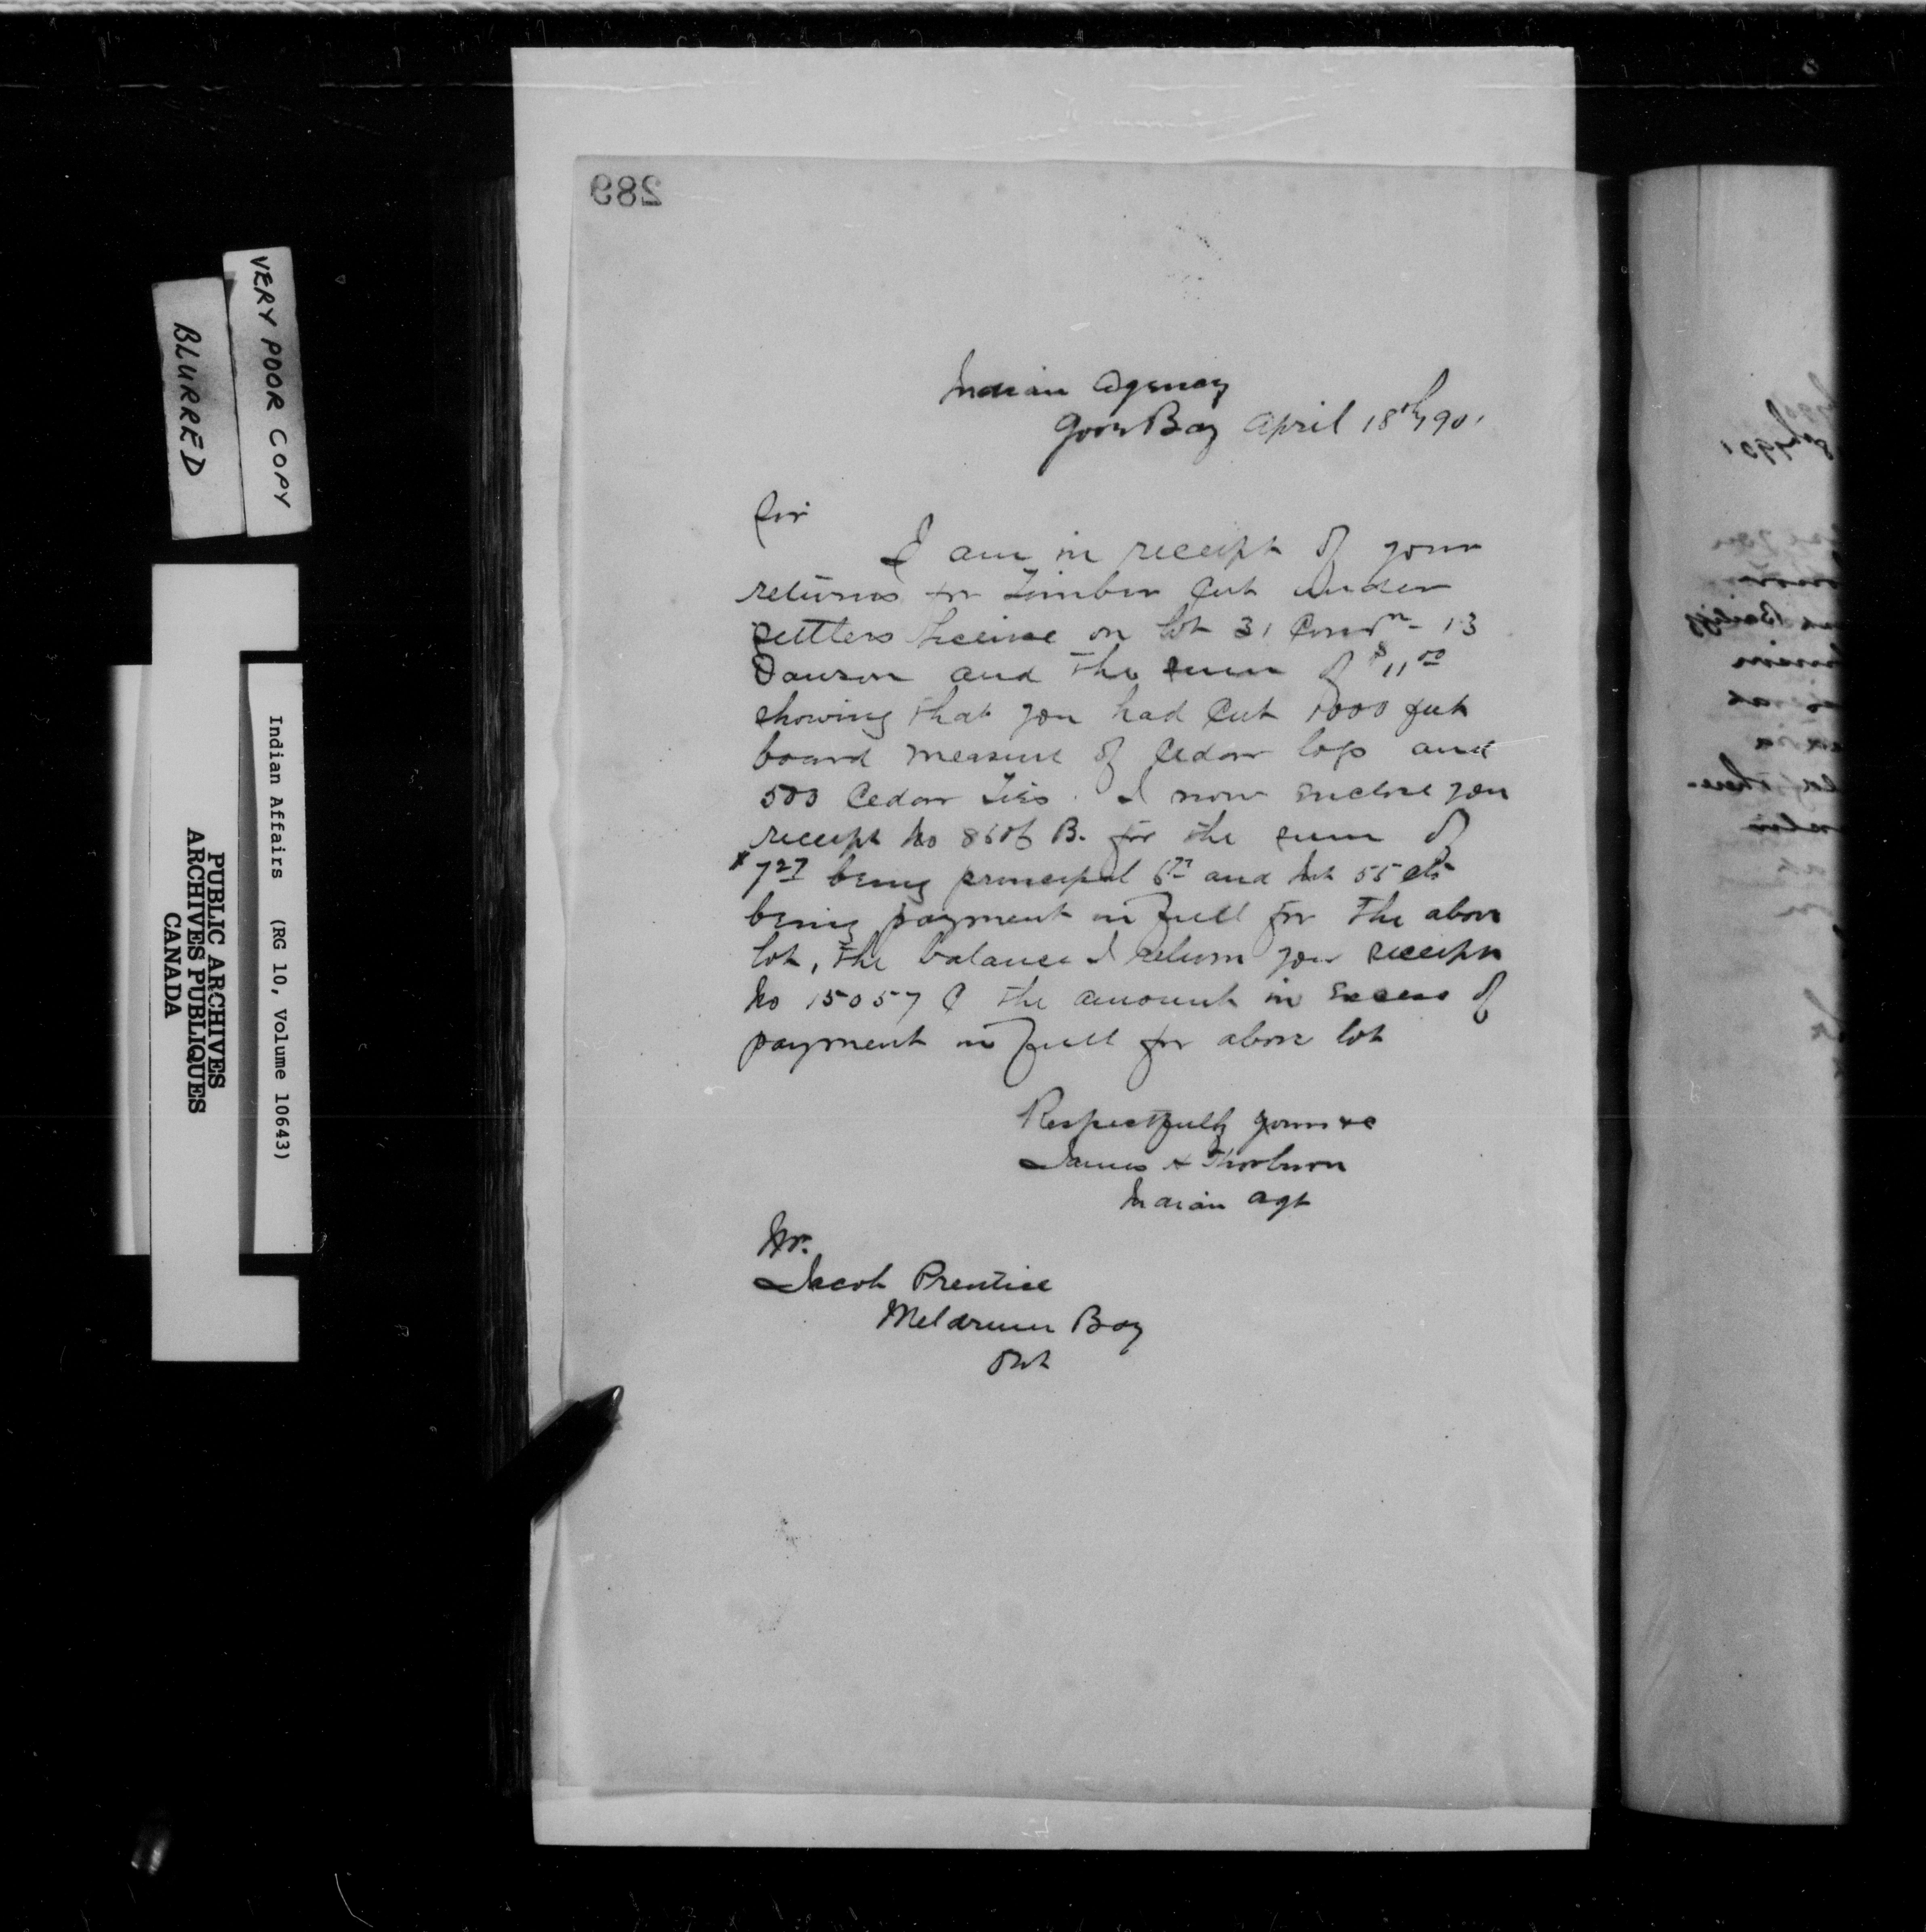 289
Indian Agency
Gore Bay April 18th 1901
Sir
I am in receipt of your
returns for Timber Cut under
settlers license on lot 31 Conn 13
Dawson and the sum of $11.00
showing that you had Cut 1000 feet
board measure of Cedar logs and
500 Cedar Ties. I now enclose you
receipt No B. for the sum of
$7.27 being principal and Int 55 cts
being payment in full for the above
lot, the balance I return you receipt
No 15057 C the amount in excess of
payment in full for above lot
Respectfully yours &c
James H Thorburn
Indian Agt
Mr.
Jacob Prentice
Meldrum Bay
Ont
VERY POOR COPY
BLURRED
Indian Affairs (RG 10, Volume 10643)
PUBLIC ARCHIVES
ARCHIVES PUBLIQUES
CANADA